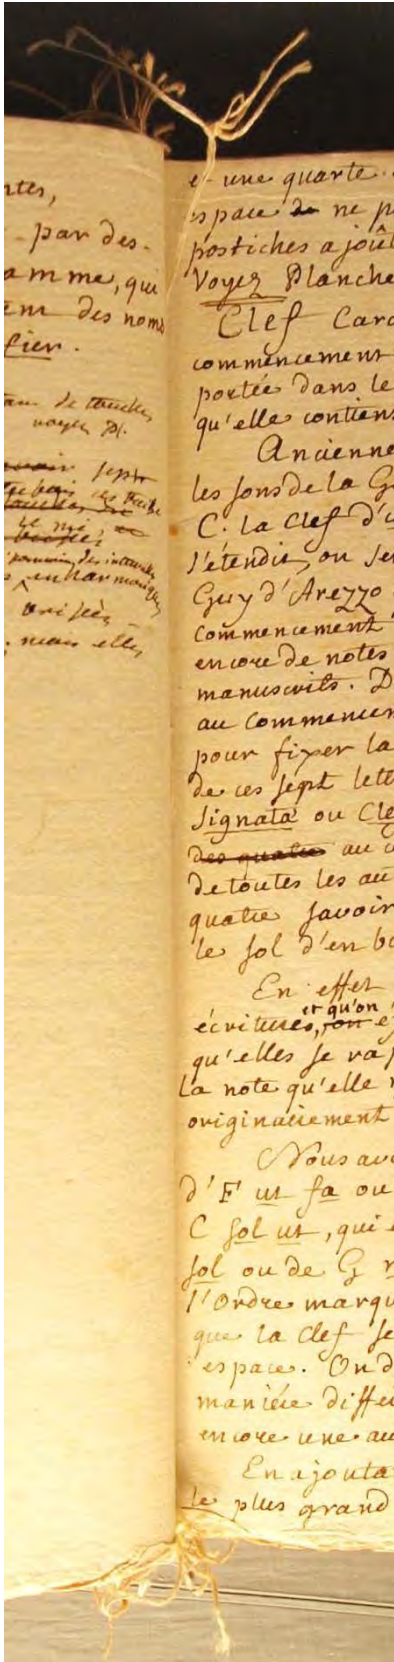 ntes,
par des-
amme, qui
ent des noms
fier.
de touches
voyez Pl.
sept
le mi,
des intervalles
enharmoniques
mais elles
et une quarte.
espace de ne p
postiches ajoût
Voyez Planche
Clef Carac
commencement
portée dans le
qu'elle contiens
Ancienne
les sons de la G
C. la Clef d'u
l'étendit, ou se
Guy d'Arezzo
commencement
encore de notes
manuscrits. D
au commencem
pour fixer la
de ces sept lett
Signata ou Cle
des quatre au
de toutes les au
quatre savoir
le sol d'en ba
En effet
et qu'on
écritures, on e
qu'elles se rap
la note qu'elle
originairement
Nous avo
d'F ut fa ou
C sol ut, qui
sol ou de G r
l'Ordre marqu
que la Clef se
espace. On d
maniére diffe
encore une au
En ajouta
le plus grand